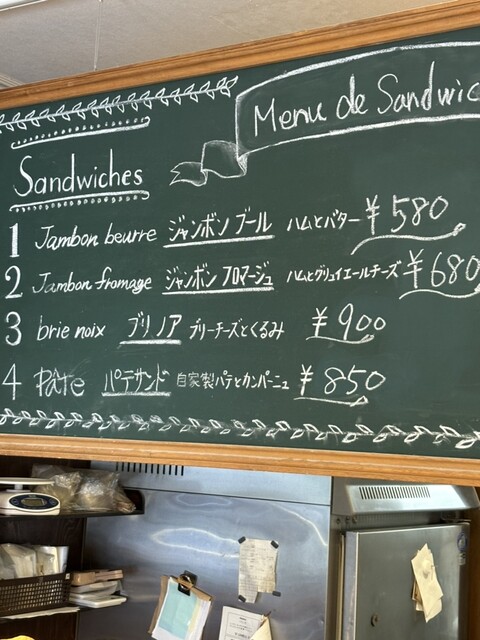 Menu de Sandwic
Sandwiches
1 Jambon beurre ジャンボンブール ハムとバター ¥580
2 Jambon fromage ジャンボン フロマージュ ハムとグリュイエールチーズ ¥680
3 brie noix ブリノア ブリーチーズとくるみ ¥900
4 Pâte パテサンド 自家製パテとカンパーニュ ¥850